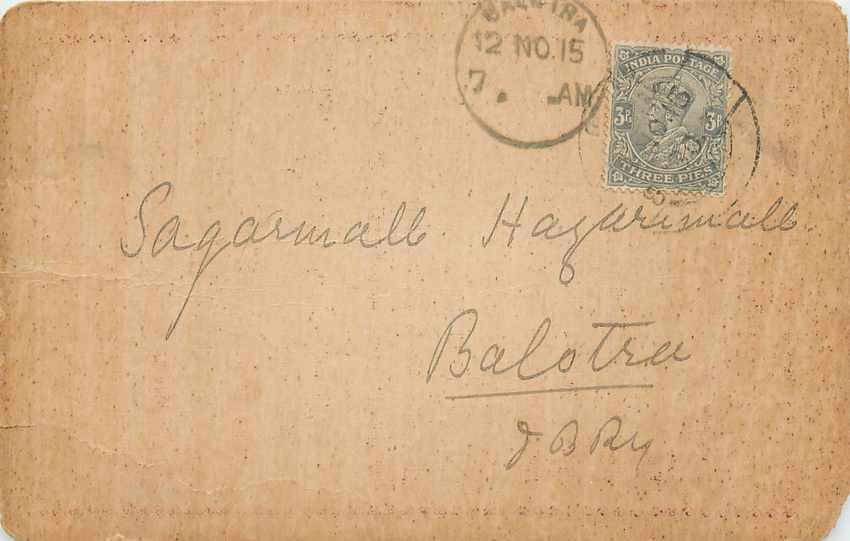 BALOTRA
12 NO.15
7. -AM
INDIA POSTAGE
3P. 3P.
THREE PIES
Sagarmall Hazarimall.
Balotra
J B Ry